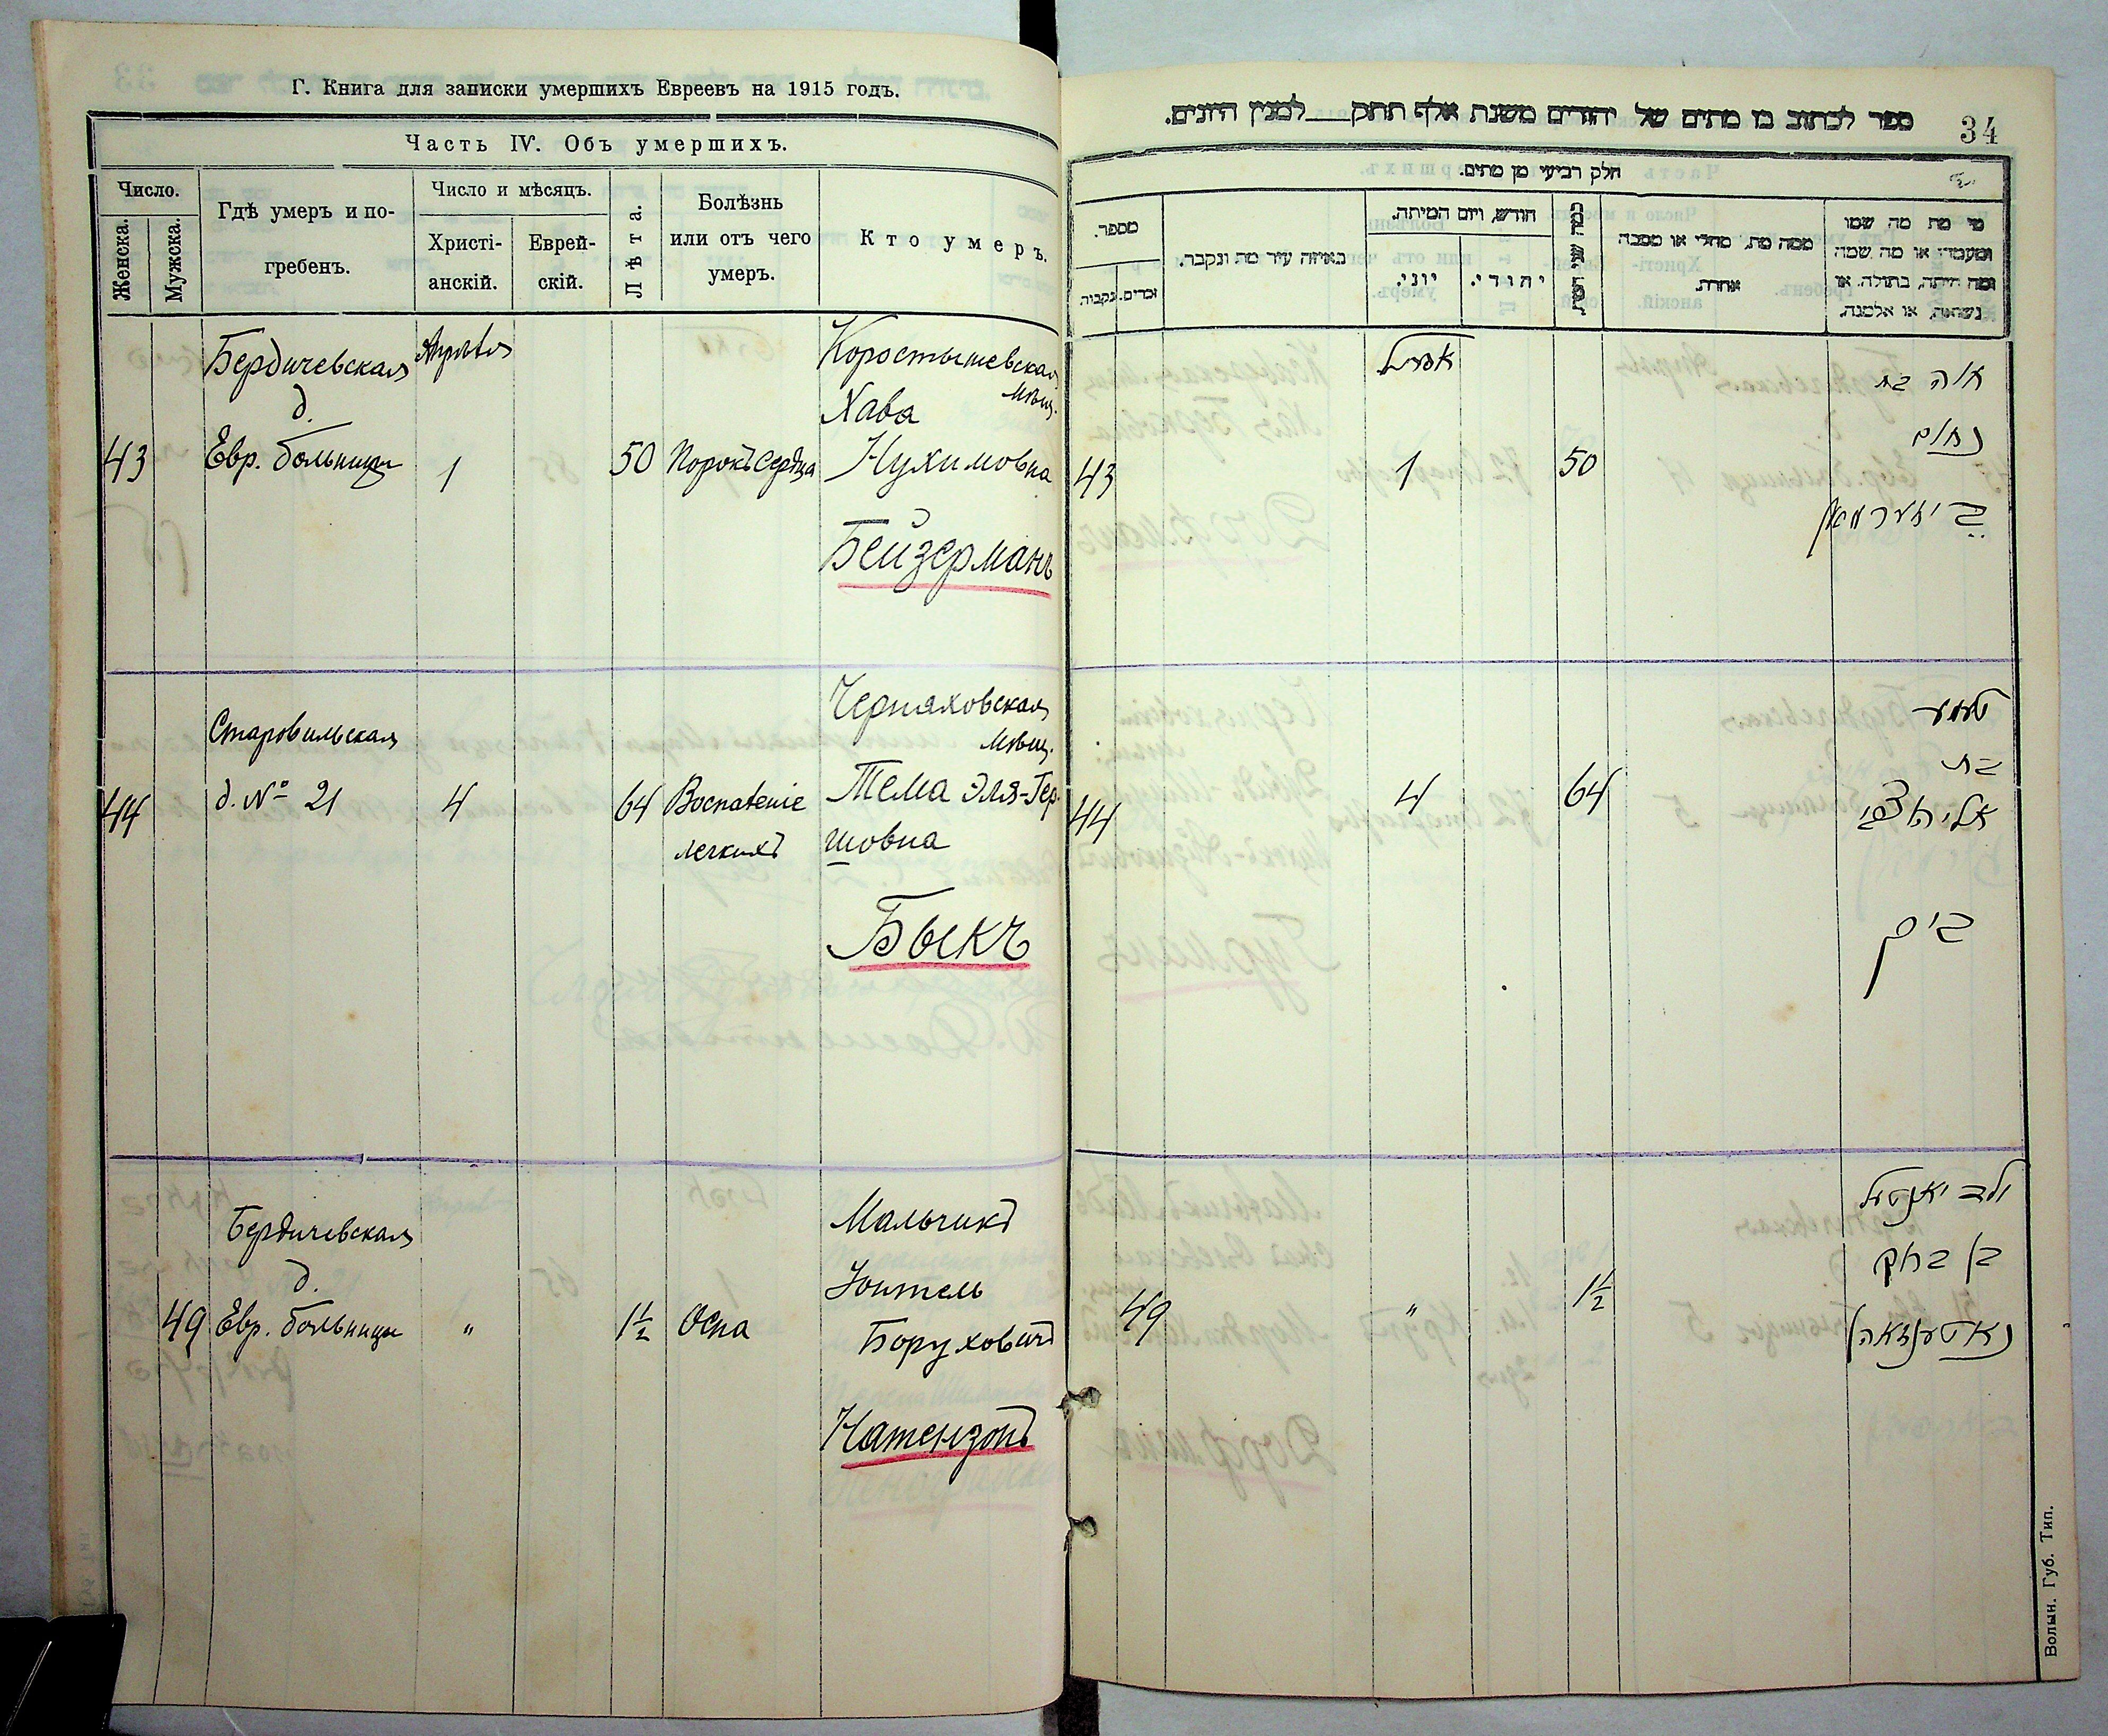 Г. Книга для записки умершихъ Евреевъ на 1915 годъ.
Часть IV. Объ умершихъ.
Число.
Женска.
Мужска.
Гдѣ умеръ и по-
гребенъ.
Число и мѣсяцъ.
Христі-
анскій.
Еврей-
скій.
Лѣта.
Болѣзнь
или отъ чего
умеръ.
Кто умеръ.
Бердичевская
д.
Евр. больницы
43
Апрѣля
1
50
Порокъ сердца
Коростышевская
мѣщ.
Хава
Нухимовна
Бейзерманъ
44
Старовильская
д. № 21
4
64
Воспаленіе
легкихъ
Черняховская
мѣщ.
Тема Эля-Гер-
шовна
Быкъ
49
Бердичевская
д.
Евр. больницы
"
1½
Оспа
Мальчикъ
Юнтель
Боруховичъ
Натензонъ
34
ספר לכתוב בו מתים של יהודים משנת אלף תתק למנין היונים.
חלק רביעי מן מתים.
מספר.
נקבות.
זכרים.
באיזה עיר מת ונקבר.
חודש, ויום המיתה.
יוני.
יהודי.
כמה שני המת
ממה מת, מחלי או מסבה
אחרת.
מי מת מה שמו
ומעמדו או מה שמה
ומה היתה, בתולה, או
נשואה, או אלמנה.
43
אפריל
1
50
חוה בת
נחום
בייזערמאן
44
4
64
טעמע
בת
אלי' הערש
ביק
49
"
1½
ילד יאנטעל
בן ברוך
נאטענזאהן
Волын. Губ. Тип.